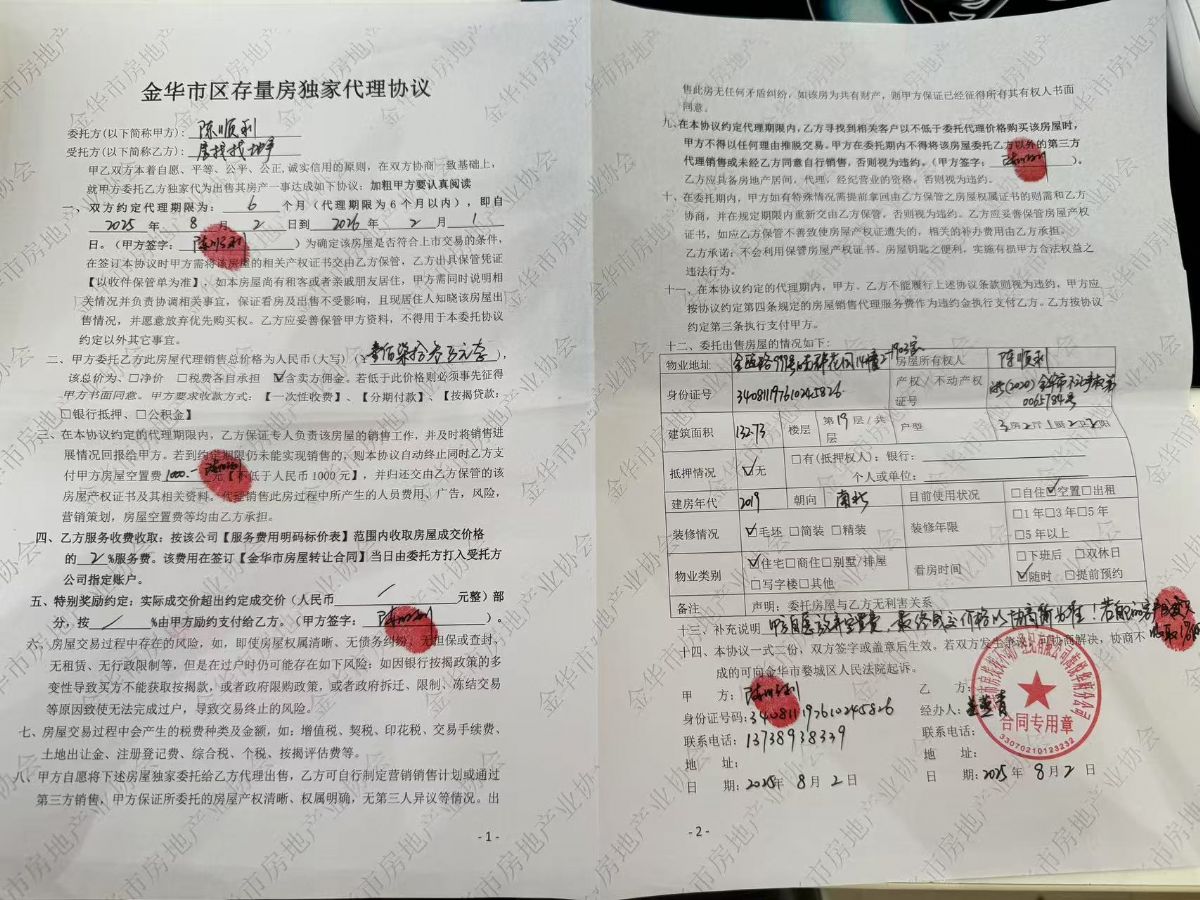 金华市区存量房独家代理协议
委托方(以下简称甲方)：陈顺利
受托方(以下简称乙方)：房找找地产
甲乙双方本着自愿、平等、公平、公正,诚实信用的原则，在双方协商一致基础上，
就甲方委托乙方独家代为出售其房产一事达成如下协议：加粗甲方要认真阅读
一、双方约定代理期限为：6个月（代理期限为6个月以内），即自
2025年8月2日到2026年2月1
日。（甲方签字：陈顺利）为确定该房屋是否符合上市交易的条件，
在签订本协议时甲方需将该房屋的相关产权证书交由乙方保管，乙方出具保管凭证
【以收件保管单为准】，如本房屋尚有租客或者亲戚朋友居住，甲方需同时说明相
关情况并负责协调相关事宜，保证看房及出售不受影响，且现居住人知晓该房屋出
售情况，并愿意放弃优先购买权。乙方应妥善保管甲方资料，不得用于本委托协议
约定以外其它事宜。
二、甲方委托乙方此房屋代理销售总价格为人民币(大写)（¥壹佰柒拾叁万元整），
该总价为、□净价 □税费各自承担 ☑含卖方佣金。若低于此价格则必须事先征得
甲方书面同意。甲方要求收款方式：【一次性收费】、【分期付款】、【按揭贷款：
□银行抵押、□公积金】
三、在本协议约定的代理期限内，乙方保证专人负责该房屋的销售工作，并及时将销售进
展情况回报给甲方。若到约定期限仍未能实现销售的，则本协议自动终止同时乙方支
付甲方房屋空置费1000.-元【不低于人民币1000元】，并归还交由乙方保管的该
房屋产权证书及其相关资料。代理销售此房过程中所产生的人员费用、广告，风险，
营销策划，房屋空置费等均由乙方承担。
四、乙方服务收费收取：按该公司【服务费用明码标价表】范围内收取房屋成交价格
的2%服务费。该费用在签订【金华市房屋转让合同】当日由委托方打入受托方
公司指定账户。
五、特别奖励约定：实际成交价超出约定成交价（人民币/元整）部
分，按/%由甲方励支付给乙方。（甲方签字：陈顺利）。
六、房屋交易过程中存在的风险，如，即使房屋权属清晰、无债务纠纷，无担保或查封，
无租赁、无行政限制等，但是在过户时仍可能存在如下风险：如因银行按揭政策的多
变性导致买方不能获取按揭款，或者政府限购政策，或者政府拆迁、限制、冻结交易
等原因致使无法完成过户，导致交易终止的风险。
七、房屋交易过程中会产生的税费种类及金额，如：增值税、契税、印花税、交易手续费、
土地出让金、注册登记费、综合税、个税、按揭评估费等。
八、甲方自愿将下述房屋独家委托给乙方代理出售，乙方可自行制定营销销售计划或通过
第三方销售，甲方保证所委托的房屋产权清晰、权属明确，无第三人异议等情况。出
- 1 -
售此房无任何矛盾纠纷，如该房为共有财产，则甲方保证已经征得所有其有权人书面
同意。
九、在本协议约定代理期限内，乙方寻找到相关客户以不低于委托代理价格购买该房屋时，
甲方不得以任何理由推脱交易。甲方在委托期内不得将该房屋委托乙方以外的第三方
代理销售或未经乙方同意自行销售，否则视为违约。（甲方签字：陈顺利）。
乙方应具备房地产居间，代理，经纪营业的资格，否则视为违约。
十、在委托期内，甲方如有特殊情况需提前拿回由乙方保管之房屋权属证书的则需和乙方
协商，并在规定期限内重新交由乙方保管，否则视为违约。乙方应妥善保管房屋产权
证书，如应乙方保管不善致使房屋产权证遗失的，相关的补办费用由乙方承担。
乙方承诺：不会利用保管房屋产权证书、房屋钥匙之便利，实施有损甲方合法权益之
违法行为。
十一、在本协议约定的代理期内，甲方、乙方不能履行上述协议条款则视为违约，甲方应
按协议约定第四条规定的房屋销售代理服务费作为违约金执行支付乙方。乙方按协议
约定第三条执行支付甲方。
十二、委托出售房屋的情况如下：
物业地址 14幢2-1903室 房屋所有权人 陈顺利
身份证号 340811197610245826 产权/不动产权证号 浙(2020)金华市不动产权第0065784号
建筑面积 132.73 楼层 第19层/共层 户型 3房2厅1厨2卫2阳
抵押情况 ☑无 □有(抵押权人)：银行：
个人或单位：
建房年代 2019 朝向 南北 目前使用状况 □自住☑空置□出租
装修情况 ☑毛坯 □简装 □精装 装修年限 □1年□3年□5年 □5年以上
物业类别 ☑住宅□商住□别墅/排屋 □写字楼□其他 看房时间 □下班后 □双休日 ☑随时 □提前预约
备注 声明：委托房屋与乙方无利害关系
十三、补充说明 甲方自愿放弃空置费，最终成交价格以协商价为准！
十四、本协议一式二份，双方签字或盖章后生效。若双方发生争议，可协商解决，协商不
成的可向金华市婺城区人民法院起诉。
甲 方：陈顺利
身份证号码：340811197610245826
联系电话：13738938339
地 址：
日 期：2025年8月2日
乙 方：
经办人：
联系电话：
地 址：
日 期：2025年8月2日
合同专用章
33070210123232
- 2 -
金华市房地产业协会